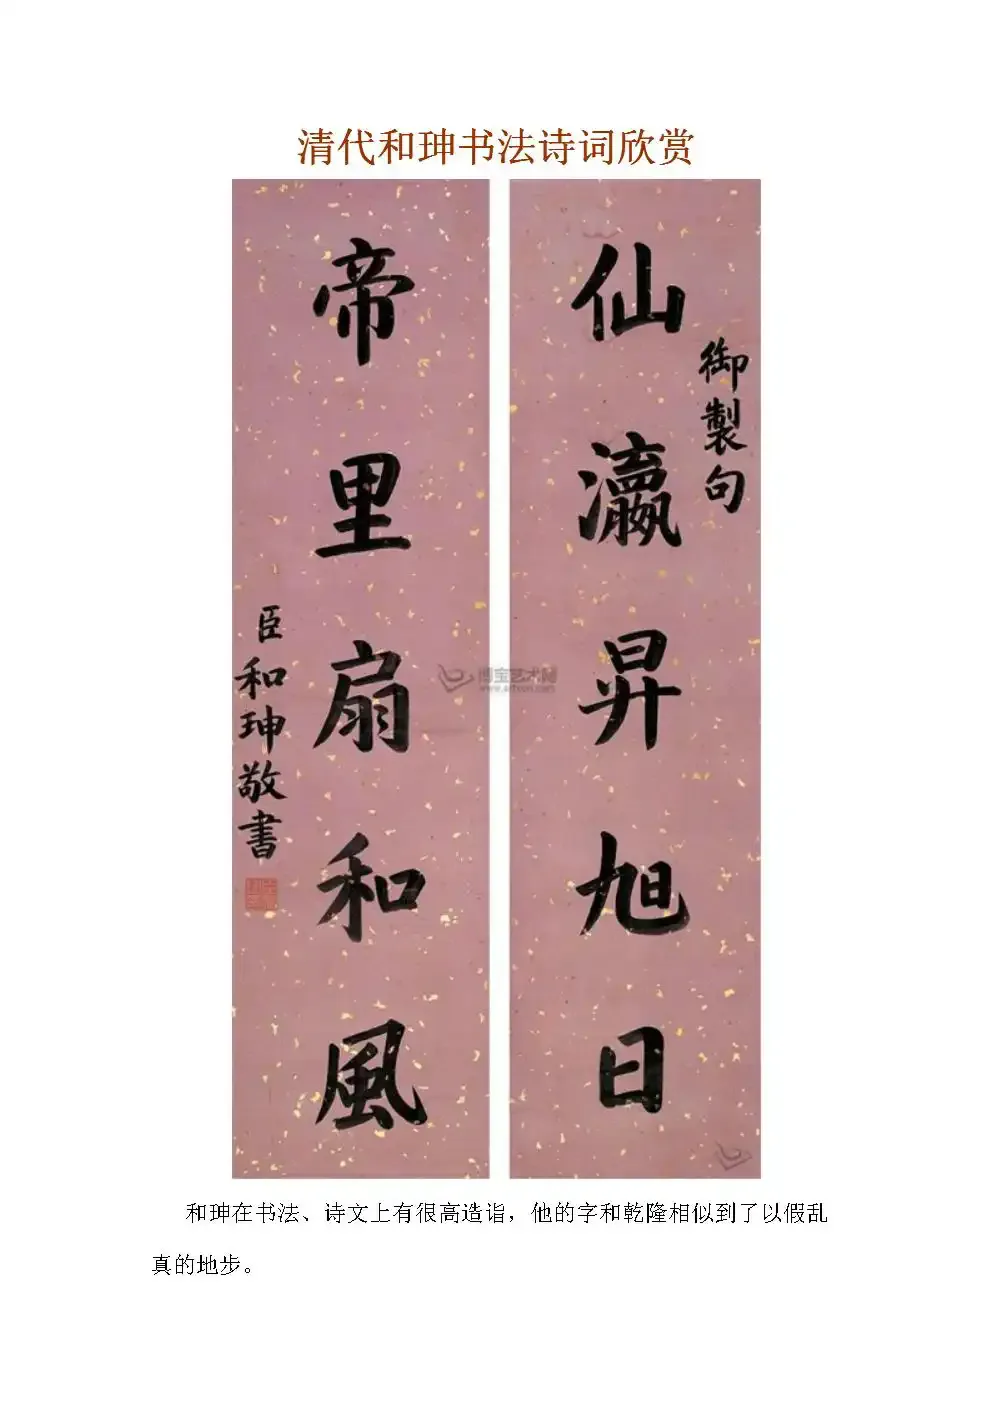 清代和珅书法诗词欣赏
御製句
仙瀛昇旭日
帝里扇和風
臣和珅敬書
博宝艺术网
www.artxun.com
和珅在书法、诗文上有很高造诣，他的字和乾隆相似到了以假乱
真的地步。